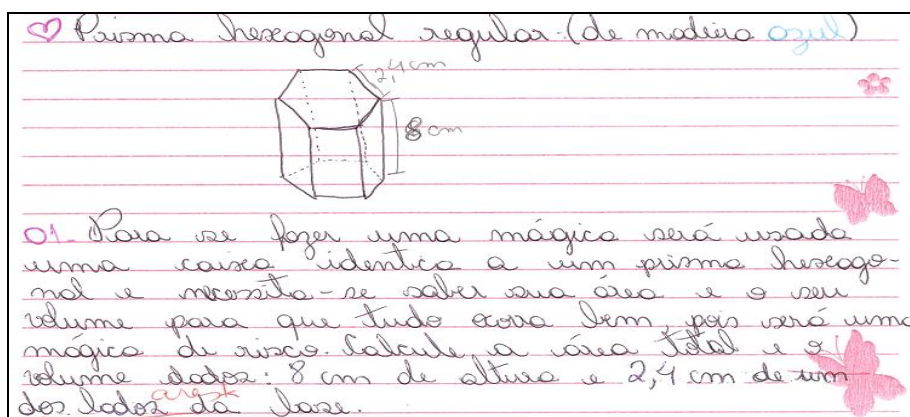 Prisma hexagonal regular (de madeira azul)
2,4 cm
8 cm
01- Para se fazer uma mágica será usada
uma caixa identica a um prisma hexago-
nal e necessita-se saber sua área e o seu
volume para que tudo ocorra bem, pois será uma
mágica de risco. Calcule a área total e o
volume dados: 8 cm de altura e 2,4 cm de um
dos lados da base.
aresta